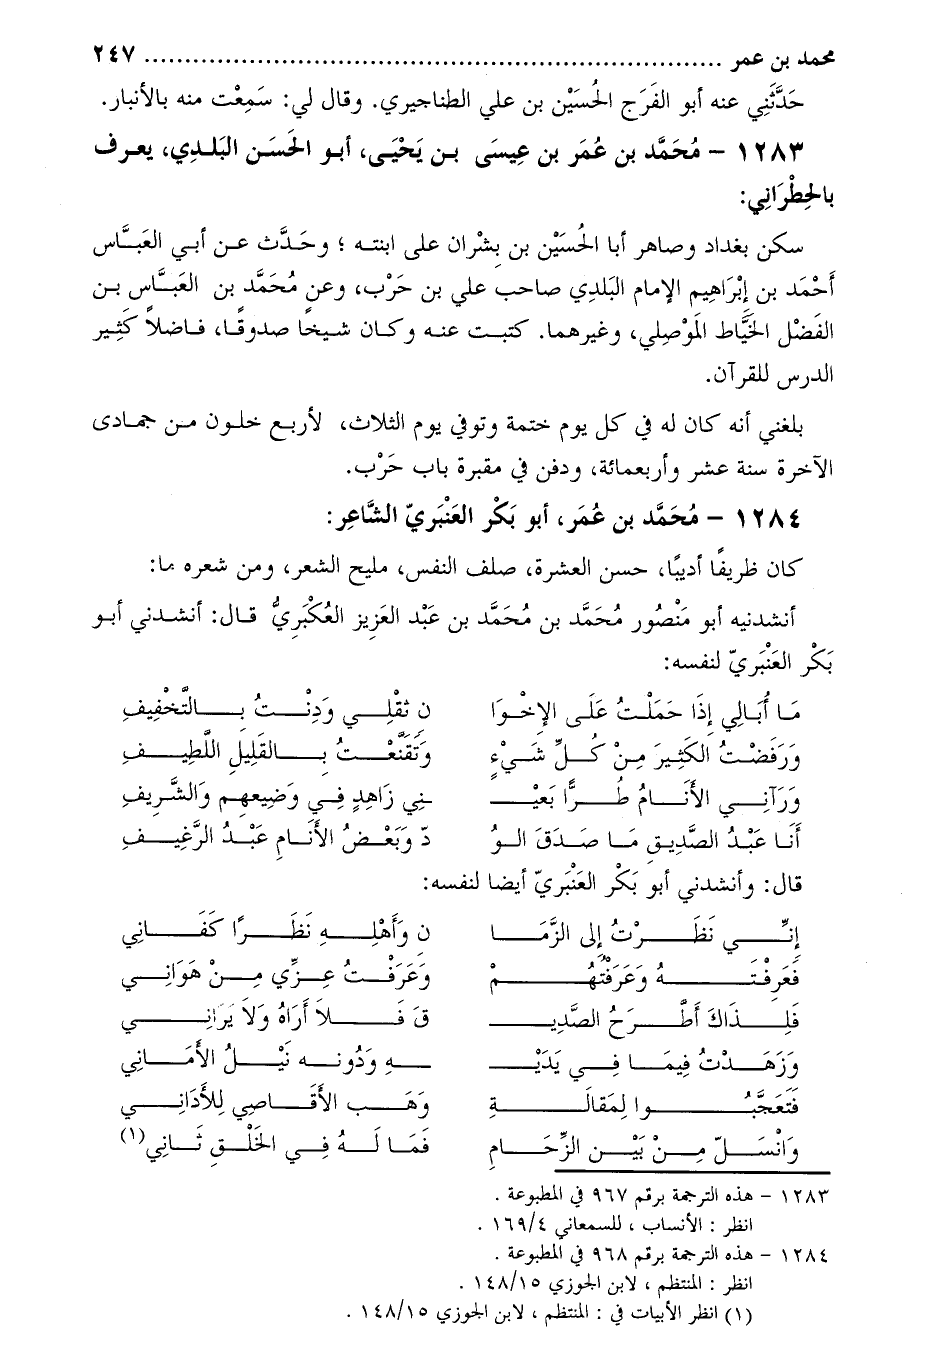 محمد بن عمر ........................................................................ ٢٤٧
حَدَّثَنِي عنه أبو الفَرَج الحُسَيْن بن علي الطناجيري. وقال لي: سَمِعْت منه بالأنبار.
١٢٨٣ – مُحَمَّد بن عُمَر بن عِيسَى بن يَحْيَى، أبو الحَسَن البَلدِي، يعرف
بالحِطْرَانِي:
سكن بغداد وصاهر أبا الحُسَيْن بن بِشْران على ابنته ؛ وحَدَّث عن أبي العَبَّاس
أَحْمَد بن إِبْرَاهِيم الإمام البَلدِي صاحب علي بن حَرْب، وعن مُحَمَّد بن العَبَّاس بن
الفَضْل الخَيَّاط المَوْصِلي، وغيرهما. كتبت عنه وكان شيخًا صدوقًا، فاضلاً كَثِير
الدرس للقرآن.
بلغني أنه كان له في كل يوم ختمة وتوفي يوم الثلاث، لأربع خلون من جمادى
الآخرة سنة عشر وأربعمائة، ودفن في مقبرة باب حَرْب.
١٢٨٤ – مُحَمَّد بن عُمَر، أبو بَكْر العَنْبَريّ الشَّاعِر:
كان ظريفًا أديبًا، حسن العشرة، صلف النفس، مليح الشعر، ومن شعره ما:
أنشدنيه أبو مَنْصُور مُحَمَّد بن مُحَمَّد بن عَبْد العَزِيز العُكْبَرِيُّ قال: أنشدني أبو
بَكْر العَنْبَريّ لنفسه:
مَا أُبَالِي إِذَا حَمَلْتُ عَلَى الإخْوَا ن ثقْلِي وَدِنْتُ بالتَّخْفِيفِ
وَرَفَضْتُ الكَثِيرَ مِنْ كُلِّ شَيْءٍ وَتَقَنَّعْتُ بالقَلِيلِ اللَّطِيفِ
وَرَآنِي الأَنَامُ طُرًّا بَعَيْـ ـنِي زَاهِدٍ فِي وَضِيعِهِم وَالشَّرِيفِ
أَنَا عَبْدُ الصَّدِيقِ مَا صَدَقَ الوُ دّ وَبَعْضُ الأَنَامِ عَبْدُ الرَّغِيفِ
قال: وأنشدني أبو بَكْر العَنْبَريّ أيضا لنفسه:
إِنِّي نَظَرْتُ إلى الزَّمَا ن وَأَهْلِهِ نَظَرًا كَفَانِي
فَعَرَفْتَهُ وَعَرَفْتُهُمْ وَعَرَفْتُ عِزِّي مِنْ هَوَانِي
فَلِذَاكَ أَطَّرَحُ الصَّدِيـ ق فَلاَ أَرَاهُ وَلاَ يَرَانِي
وَزَهَدْتُ فِيمَا فِي يَدَيْـ ـهِ وَدُونه نَيْلُ الأَمَانِي
فَتَعَجَّبُوا لِمَقَالَةِ وَهَب الأَقَاصِي لِلأَدَانِي
وَانْسَلّ مِنْ بَيْنِ الزِّحَامِ فَمَا لَهُ فِي الخَلْقِ ثَانِي(١)
١٢٨٣ – هذه الترجمة برقم ٩٦٧ في المطبوعة .
انظر : الأنساب ، للسمعاني ١٦٩/٤ .
١٢٨٤ – هذه الترجمة برقم ٩٦٨ في المطبوعة .
انظر : المنتظم ، لابن الجوزي ١٤٨/١٥ .
(١) انظر الأبيات في : المنتظم ، لابن الجوزي ١٤٨/١٥ .